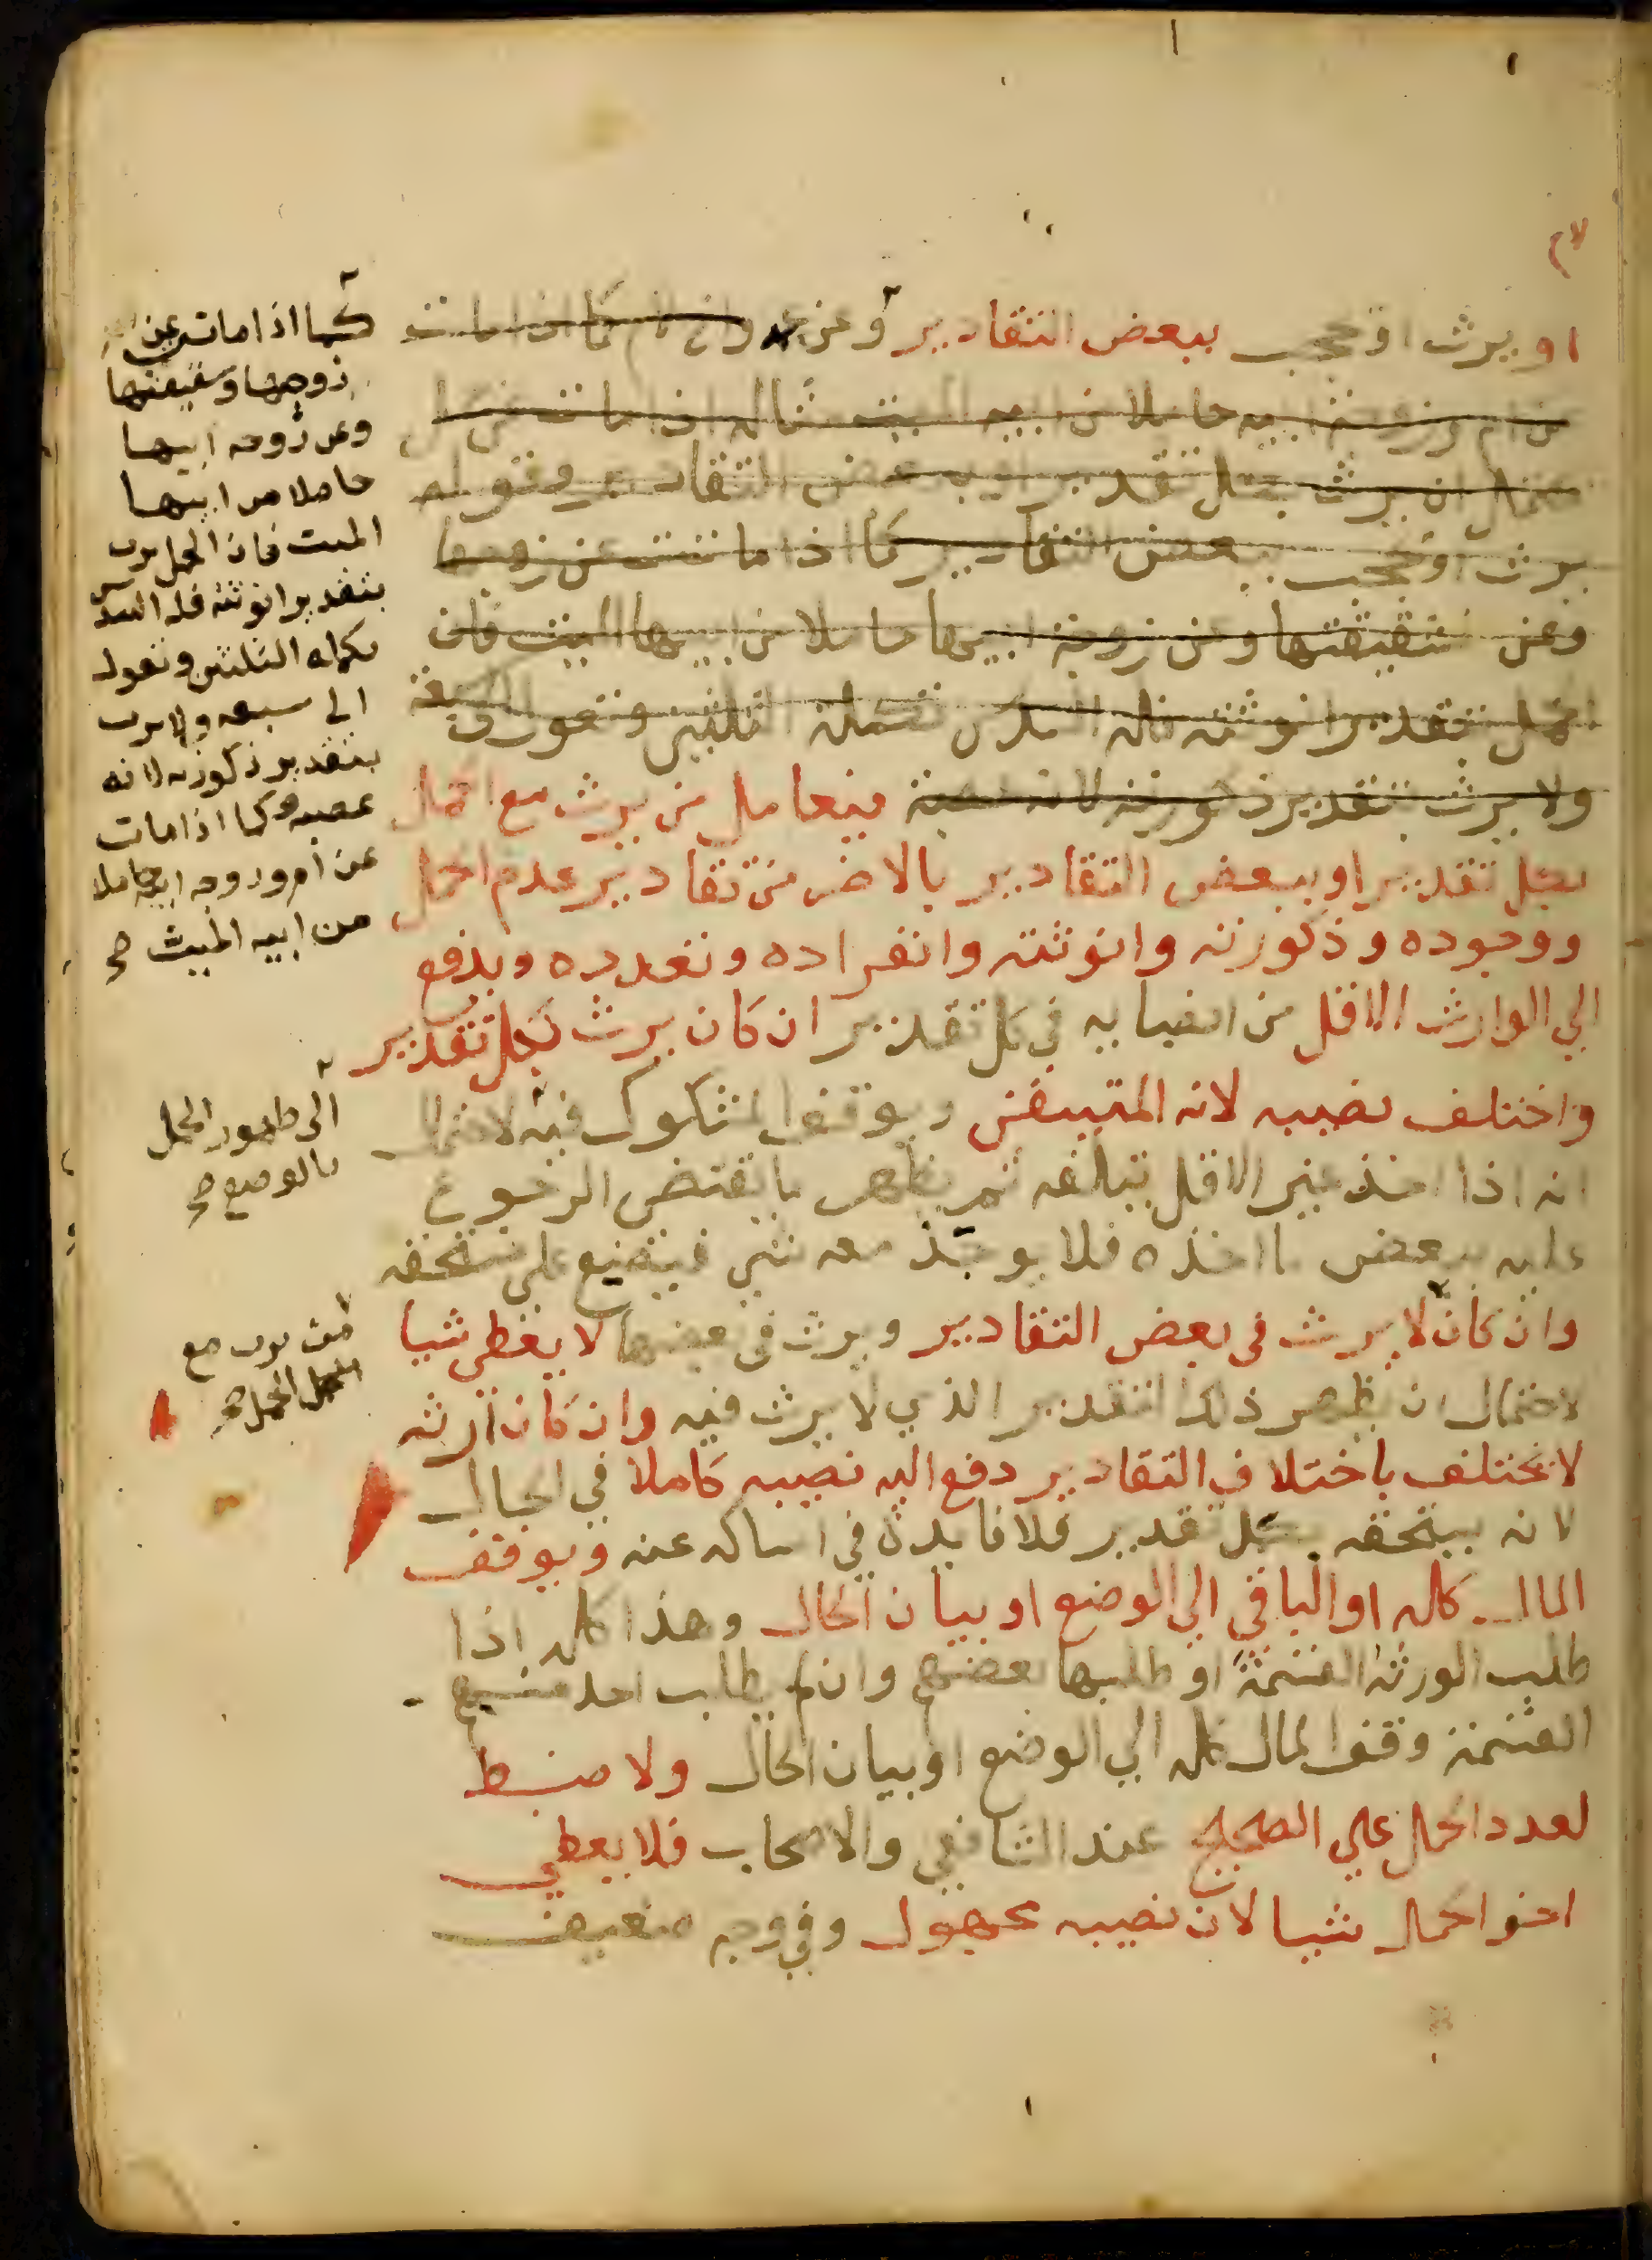 او يرث او يحجب ببعض التقادير وعن كما اذا مات
عن ام وزوجة ابيه حاملا من ابيه الميت مثاله اذا مات عن
يرث بكل تقدير او ببعض التقادير وقوله
يرث او يحجب ببعض التقادير كما اذا ماتت عن زوجها
وعن شقيقتها وعن زوجة ابيها حاملا من ابيها الميت فان
الحمل بتقدير انوثته فله السدس تكملة الثلثين وتعول الى سبعة
ولا يرث بتقدير ذكورته لانه عصبة فيعامل من يرث مع الحمل
بكل تقدير او ببعض التقادير بالاضر من تقادير عدم الحمل
ووجوده وذكورته وانوثته وانفراده وتعدده ويدفع
الي الوارث الاقل من انصبايه في كل تقدير ان كان يرث بكل تقدير
واختلف نصيبه لانه المتيقن ويوقف المشكوك فيه لاحتمال
انه اذا اخذ غير الاقل يتلفه ثم يظهر ما يقتضي الرجوع
عليه ببعض ما اخذه فلا يوجد معه شي فيضيع علي مستحقه
وان كان لا يرث في بعض التقادير ويرث في بعضها لا يعطي شيا
لاحتمال ان يظهر ذلك التقدير الذي لا يرث فيه وان كان ارثه
لا يختلف باختلاف التقادير دفع اليه نصيبه كاملا في الحال
لانه يستحقه بكل تقدير فلا فايدة في امساكه عنه ويوقف
المال كله او الباقي الي الوضع او بيان الحال وهذا كله اذا
طلب الورثة القسمة او طلبها بعضهم وان لم يطلب احد منهم
القسمة وقف المال كله الي الوضع او بيان الحال ولا ضبط
لعدد الحمل علي الصحيح عند الشافعي والاصحاب فلا يعطي
اخو الحمل شيا لان نصيبه مجهول وفي وجه ضعيف
كما اذا ماتت عن
زوجها وشقيقتها
وعن زوجه ابيها
حاملا من ابيها
الميت فان الحمل يرث
بتقدير انوثته فله السدس
تكملة الثلثين وتعول
الى سبعه ولا يرث
بتقدير ذكورته لانه
عصبه وكما اذا مات
عن ام وزوجه ابيه حاملا
من ابيه الميت صح
الى ظهور الحمل
بالوضع صح
من يرث مع
الحمل صح